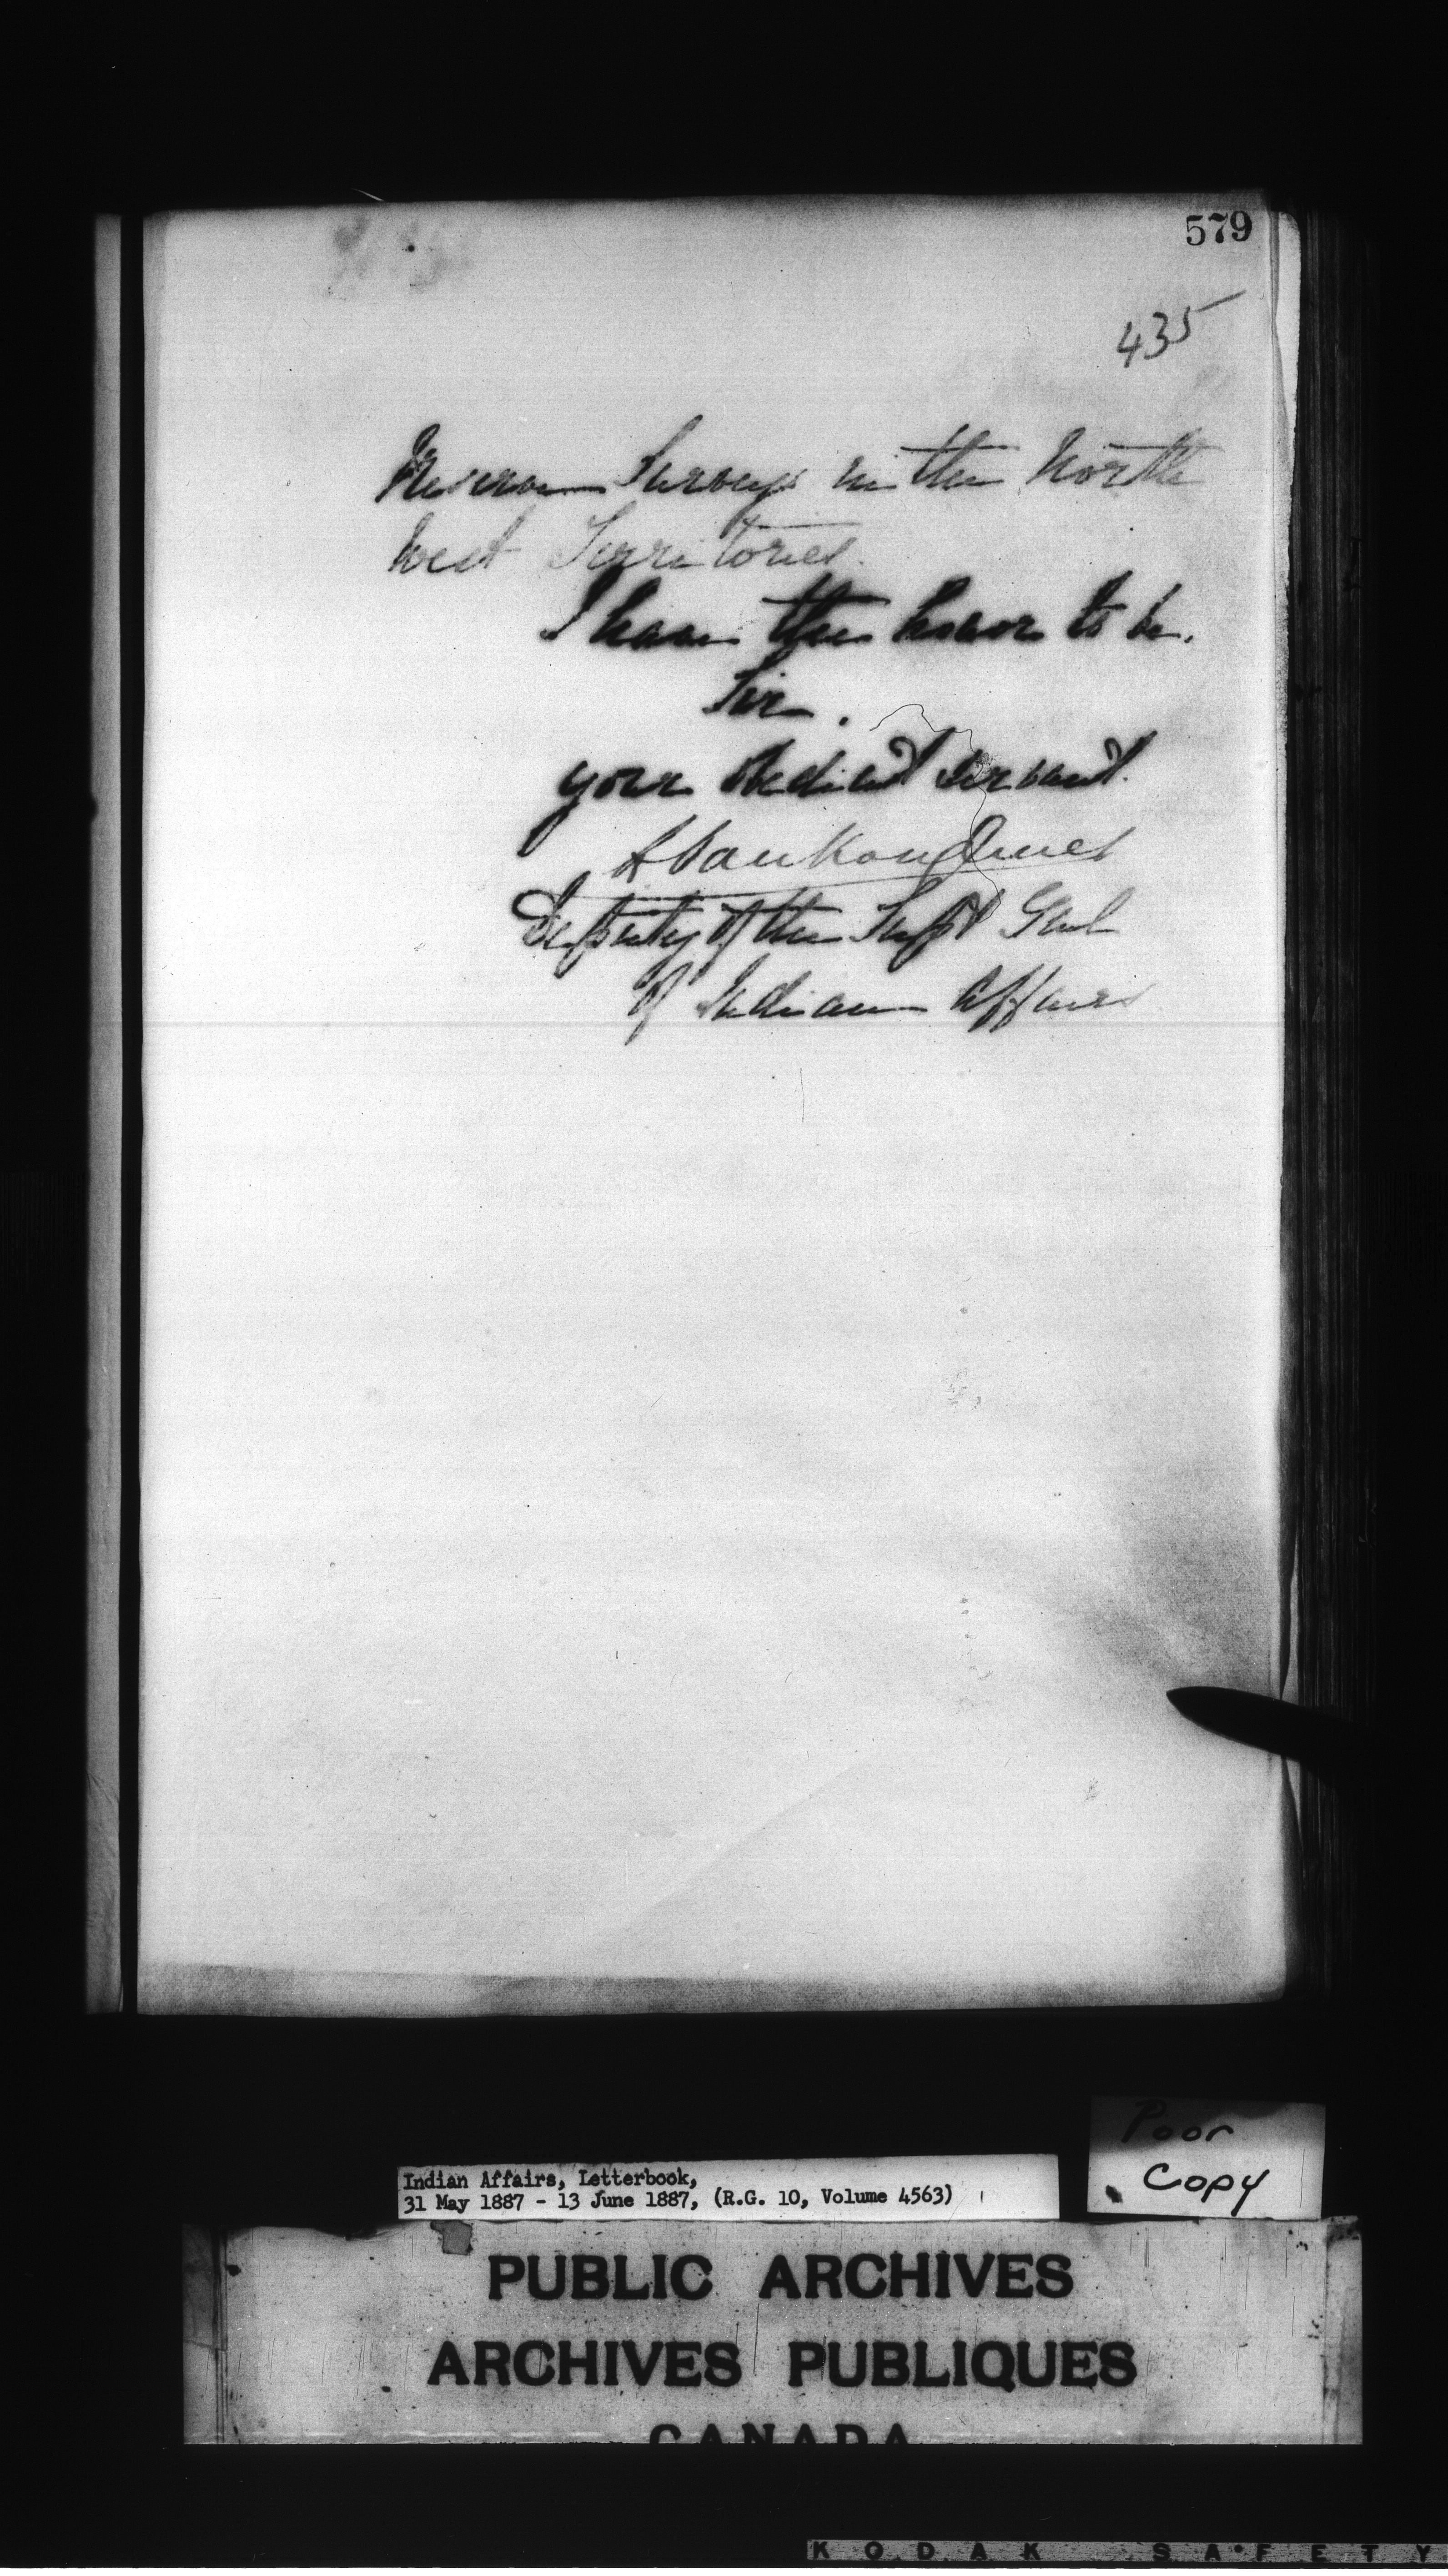 579
435
Reserve Surveys in the North
West Territories.
I have the honor to be,
Sir.
your obedient servant.
L Vankoughnet
Deputy of the Supt Genl
of Indian Affairs
Poor
Copy
Indian Affairs, Letterbook,
31 May 1887 - 13 June 1887, (R.G. 10, Volume 4563)
PUBLIC ARCHIVES
ARCHIVES PUBLIQUES
CANADA
KODAK SAFETY